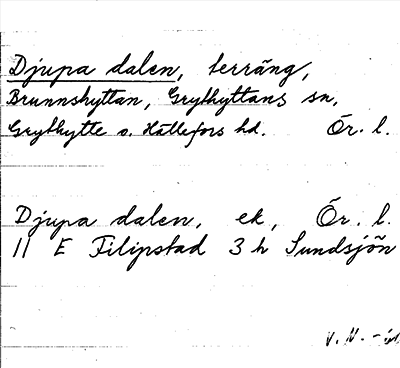 Djupa dalen, terräng,
Brunnshyttan, Grythyttans sn,
Grythytte o. Hällefors hd. Ör. l.
Djupa dalen, ek, Ör. l.
11 E Filipstad 3 h Sundsjön
V. N. -